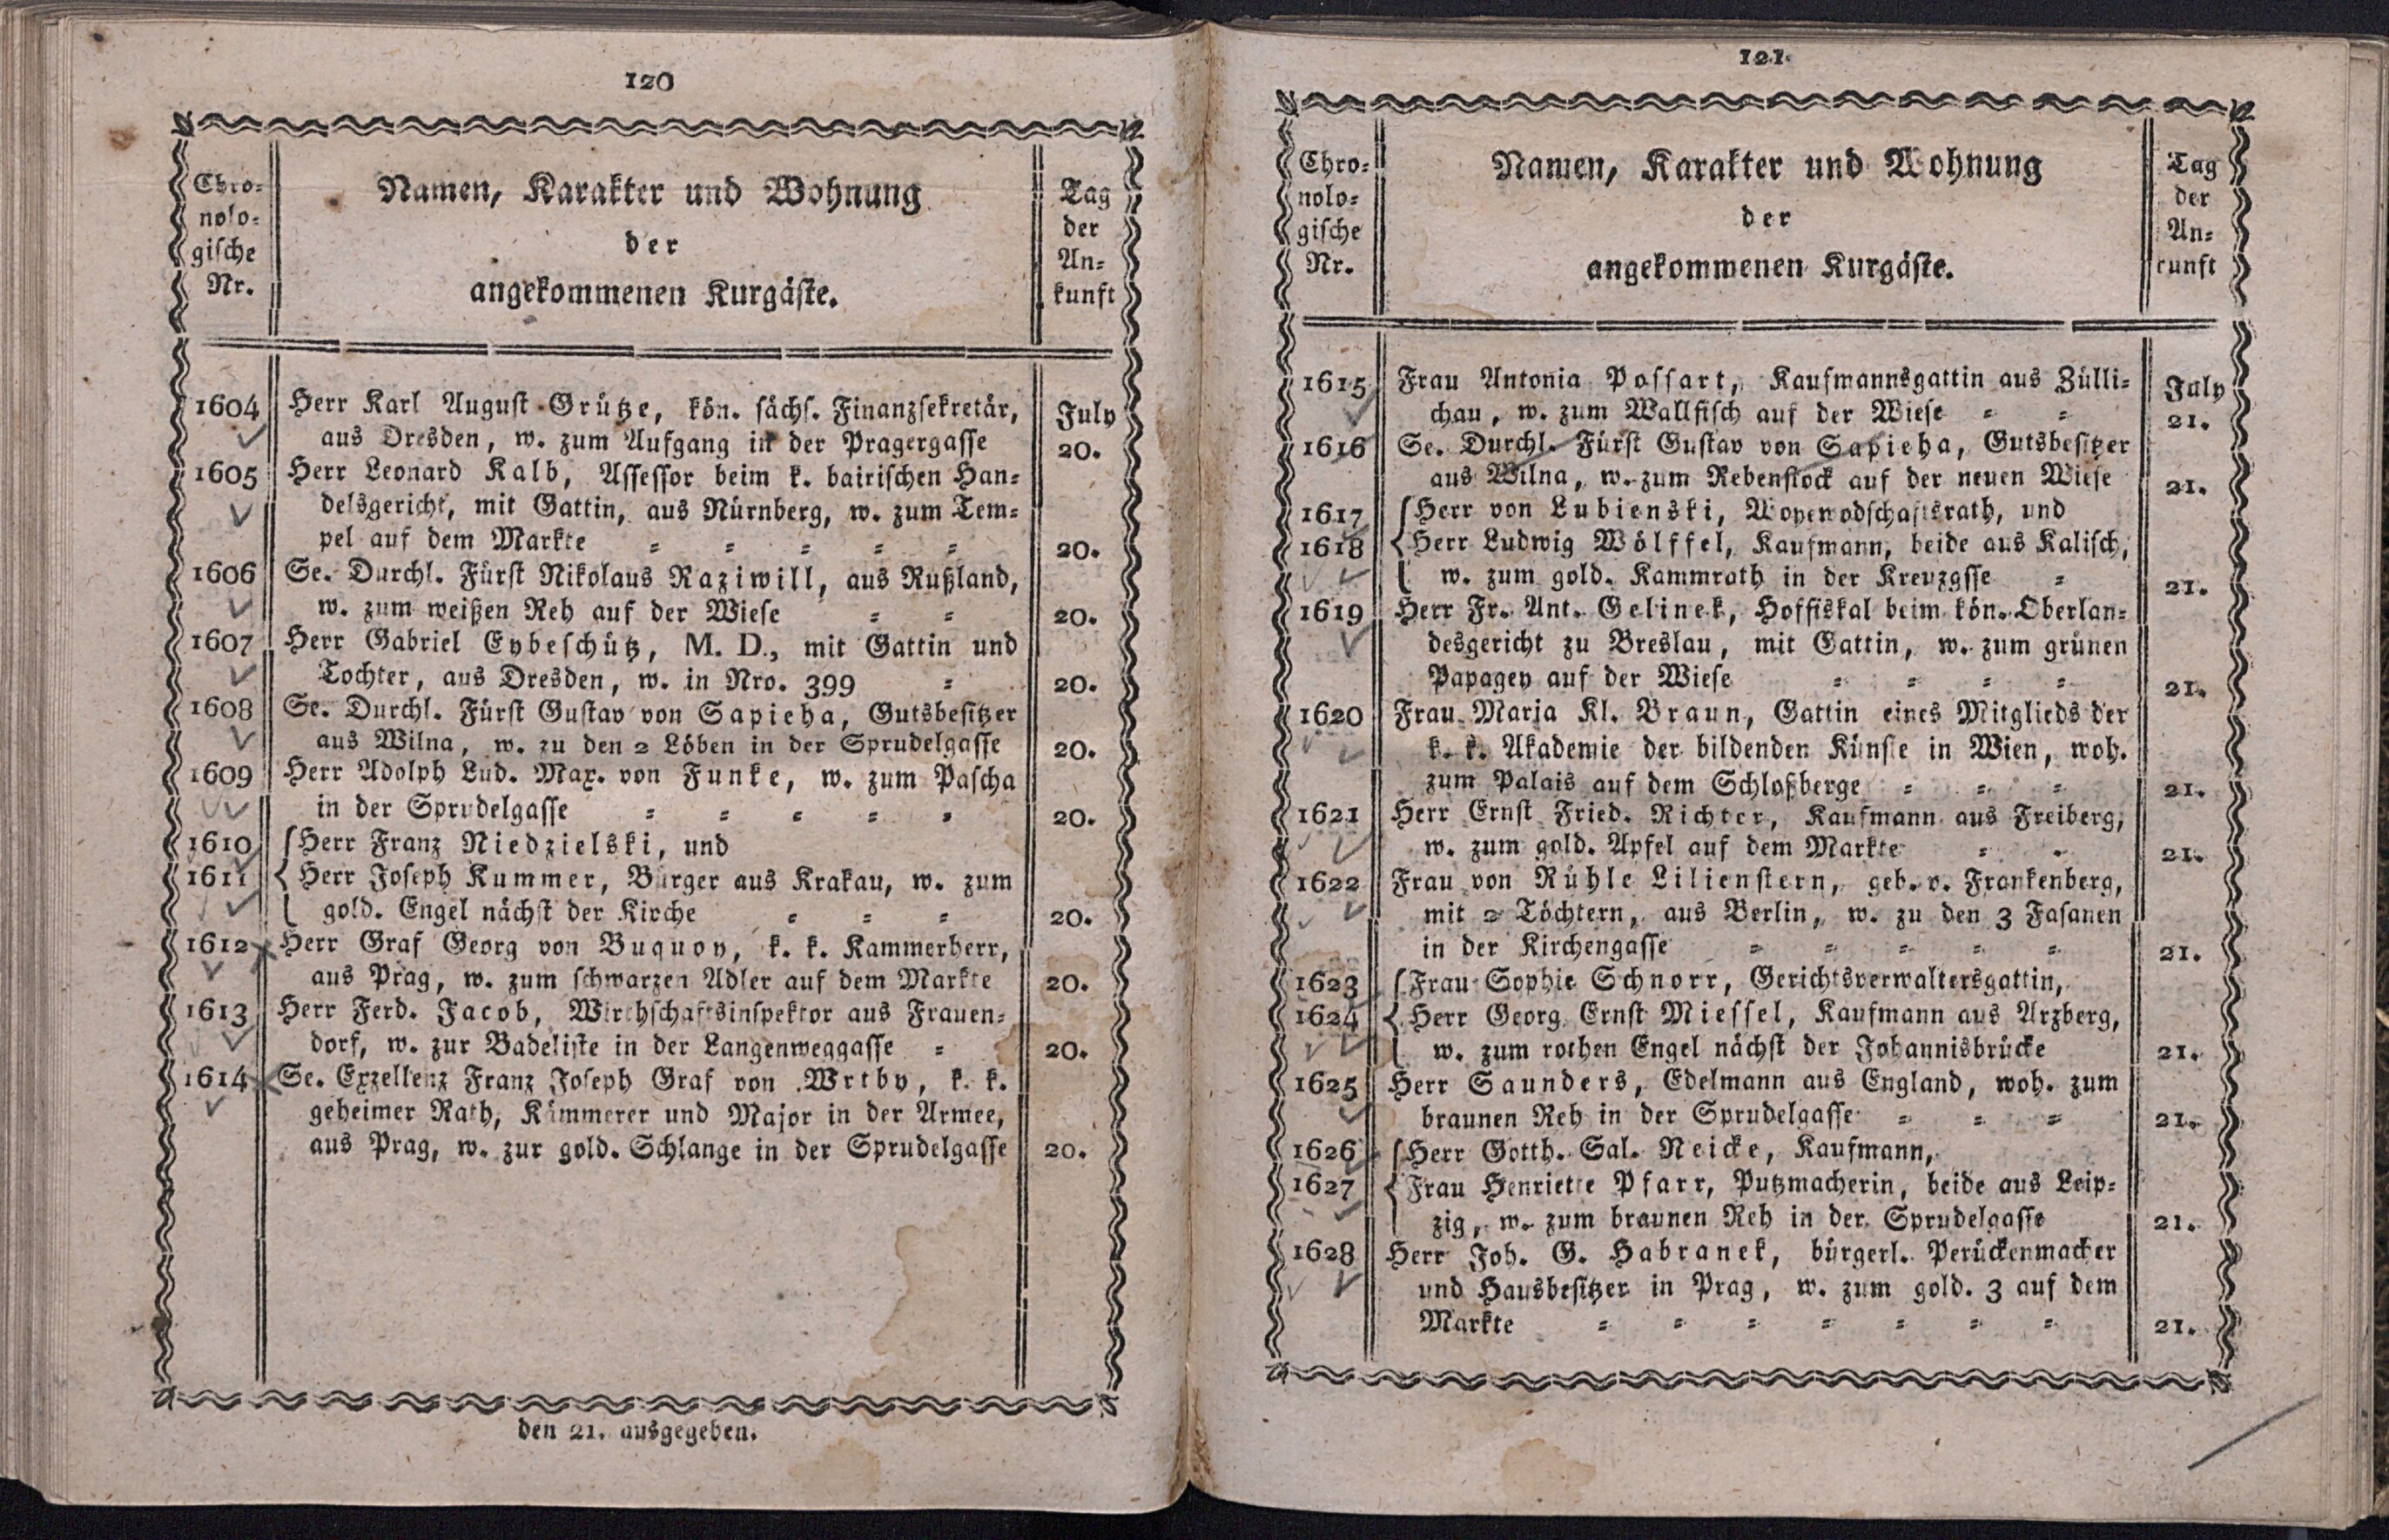 120
Chro-
nolo-
gische
Nr.
Namen, Karakter und Wohnung
der
angekommenen Kurgäste.
Tag
der
An-
kunft
1604 Herr Karl August Grütze, kön. sächs. Finanzsekretär, July
aus Dresden, w. zum Aufgang in der Pragergasse 20.
1605 Herr Leonard Kalb, Assessor beim k. bairischen Han-
delsgericht, mit Gattin, aus Nürnberg, w. zum Tem-
pel auf dem Markte = = = = = 20.
1606 Se. Durchl. Fürst Nikolaus Raziwill, aus Rußland,
w. zum weißen Reh auf der Wiese = = 20.
1607 Herr Gabriel Eybeschütz, M. D., mit Gattin und
Tochter, aus Dresden, w. in Nro. 399 = 20.
1608 Se. Durchl. Fürst Gustav von Sapieha, Gutsbesitzer
aus Wilna, w. zu den 2 Löben in der Sprudelgasse 20.
1609 Herr Adolph Lud. Max. von Funke, w. zum Pascha
in der Sprudelgasse = = = = = 20.
1610 Herr Franz Niedzielski, und
1611 Herr Joseph Kummer, Bürger aus Krakau, w. zum
gold. Engel nächst der Kirche = = = 20.
1612 Herr Graf Georg von Buquoy, k. k. Kammerherr,
aus Prag, w. zum schwarzen Adler auf dem Markte 20.
1613 Herr Ferd. Jacob, Wirthschaftsinspektor aus Frauen-
dorf, w. zur Badeliste in der Langenweggasse = 20.
1614 Se. Exzellenz Franz Joseph Graf von Wrtby, k. k.
geheimer Rath, Kämmerer und Major in der Armee,
aus Prag, w. zur gold. Schlange in der Sprudelgasse 20.
den 21. ausgegeben.
121
Chro-
nolo-
gische
Nr.
Namen, Karakter und Wohnung
der
angekommenen Kurgäste.
Tag
der
An-
kunft
1615 Frau Antonia Possart, Kaufmannsgattin aus Zülli- July
chau, w. zum Wallfisch auf der Wiese = = 21.
1616 Se. Durchl. Fürst Gustav von Sapieha, Gutsbesitzer
aus Wilna, w. zum Rebenstock auf der neuen Wiese 21.
1617 Herr von Lubienski, Woyewodschaftsrath, und
1618 Herr Ludwig Wölffel, Kaufmann, beide aus Kalisch,
w. zum gold. Kammrath in der Kreuzgsse = 21.
1619 Herr Fr. Ant. Gelinek, Hoffiskal beim kön. Oberlan-
desgericht zu Breslau, mit Gattin, w. zum grünen
Papagey auf der Wiese = = = = 21.
1620 Frau Maria Kl. Braun, Gattin eines Mitglieds der
k. k. Akademie der bildenden Künste in Wien, woh.
zum Palais auf dem Schloßberge = = = 21.
1621 Herr Ernst Fried. Richter, Kaufmann aus Freiberg,
w. zum gold. Apfel auf dem Markte = = 21.
1622 Frau von Rühle Lilienstern, geb. v. Frankenberg,
mit 2 Töchtern, aus Berlin, w. zu den 3 Fasanen
in der Kirchengasse = = = = = 21.
1623 Frau Sophie Schnorr, Gerichtsverwaltersgattin,
1624 Herr Georg Ernst Miessel, Kaufmann aus Arzberg,
w. zum rothen Engel nächst der Johannisbrücke 21.
1625 Herr Saunders, Edelmann aus England, woh. zum
braunen Reh in der Sprudelgasse = = = 21.
1626 Herr Gotth. Sal. Neicke, Kaufmann,
1627 Frau Henriette Pfarr, Putzmacherin, beide aus Leip-
zig, w. zum braunen Reh in der Sprudelgasse 21.
1628 Herr Joh. G. Habranek, bürgerl. Perückenmacher
und Hausbesitzer in Prag, w. zum gold. 3 auf dem
Markte = = = = = = = 21.